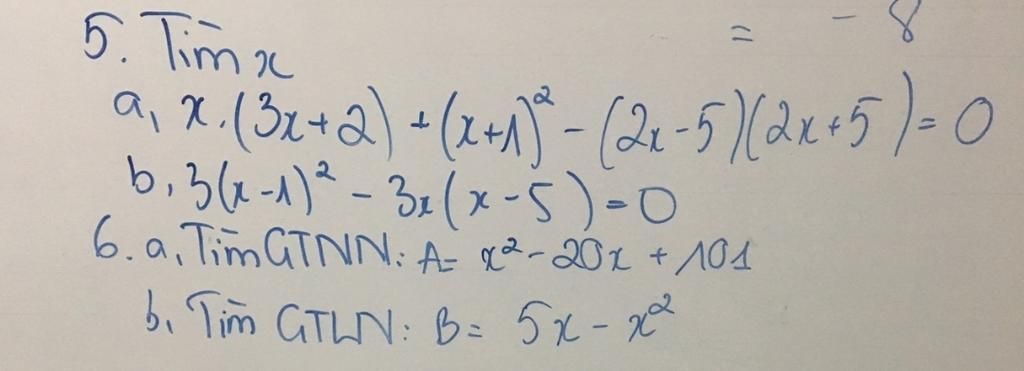 = - 8
5. Tìm x
a, x.(3x+2) + (x+1)² - (2x-5)(2x+5) = 0
b, 3(x-1)² - 3x(x-5) = 0
6. a, Tìm GTNN: A = x² - 20x + 101
b, Tìm GTLN: B = 5x - x²